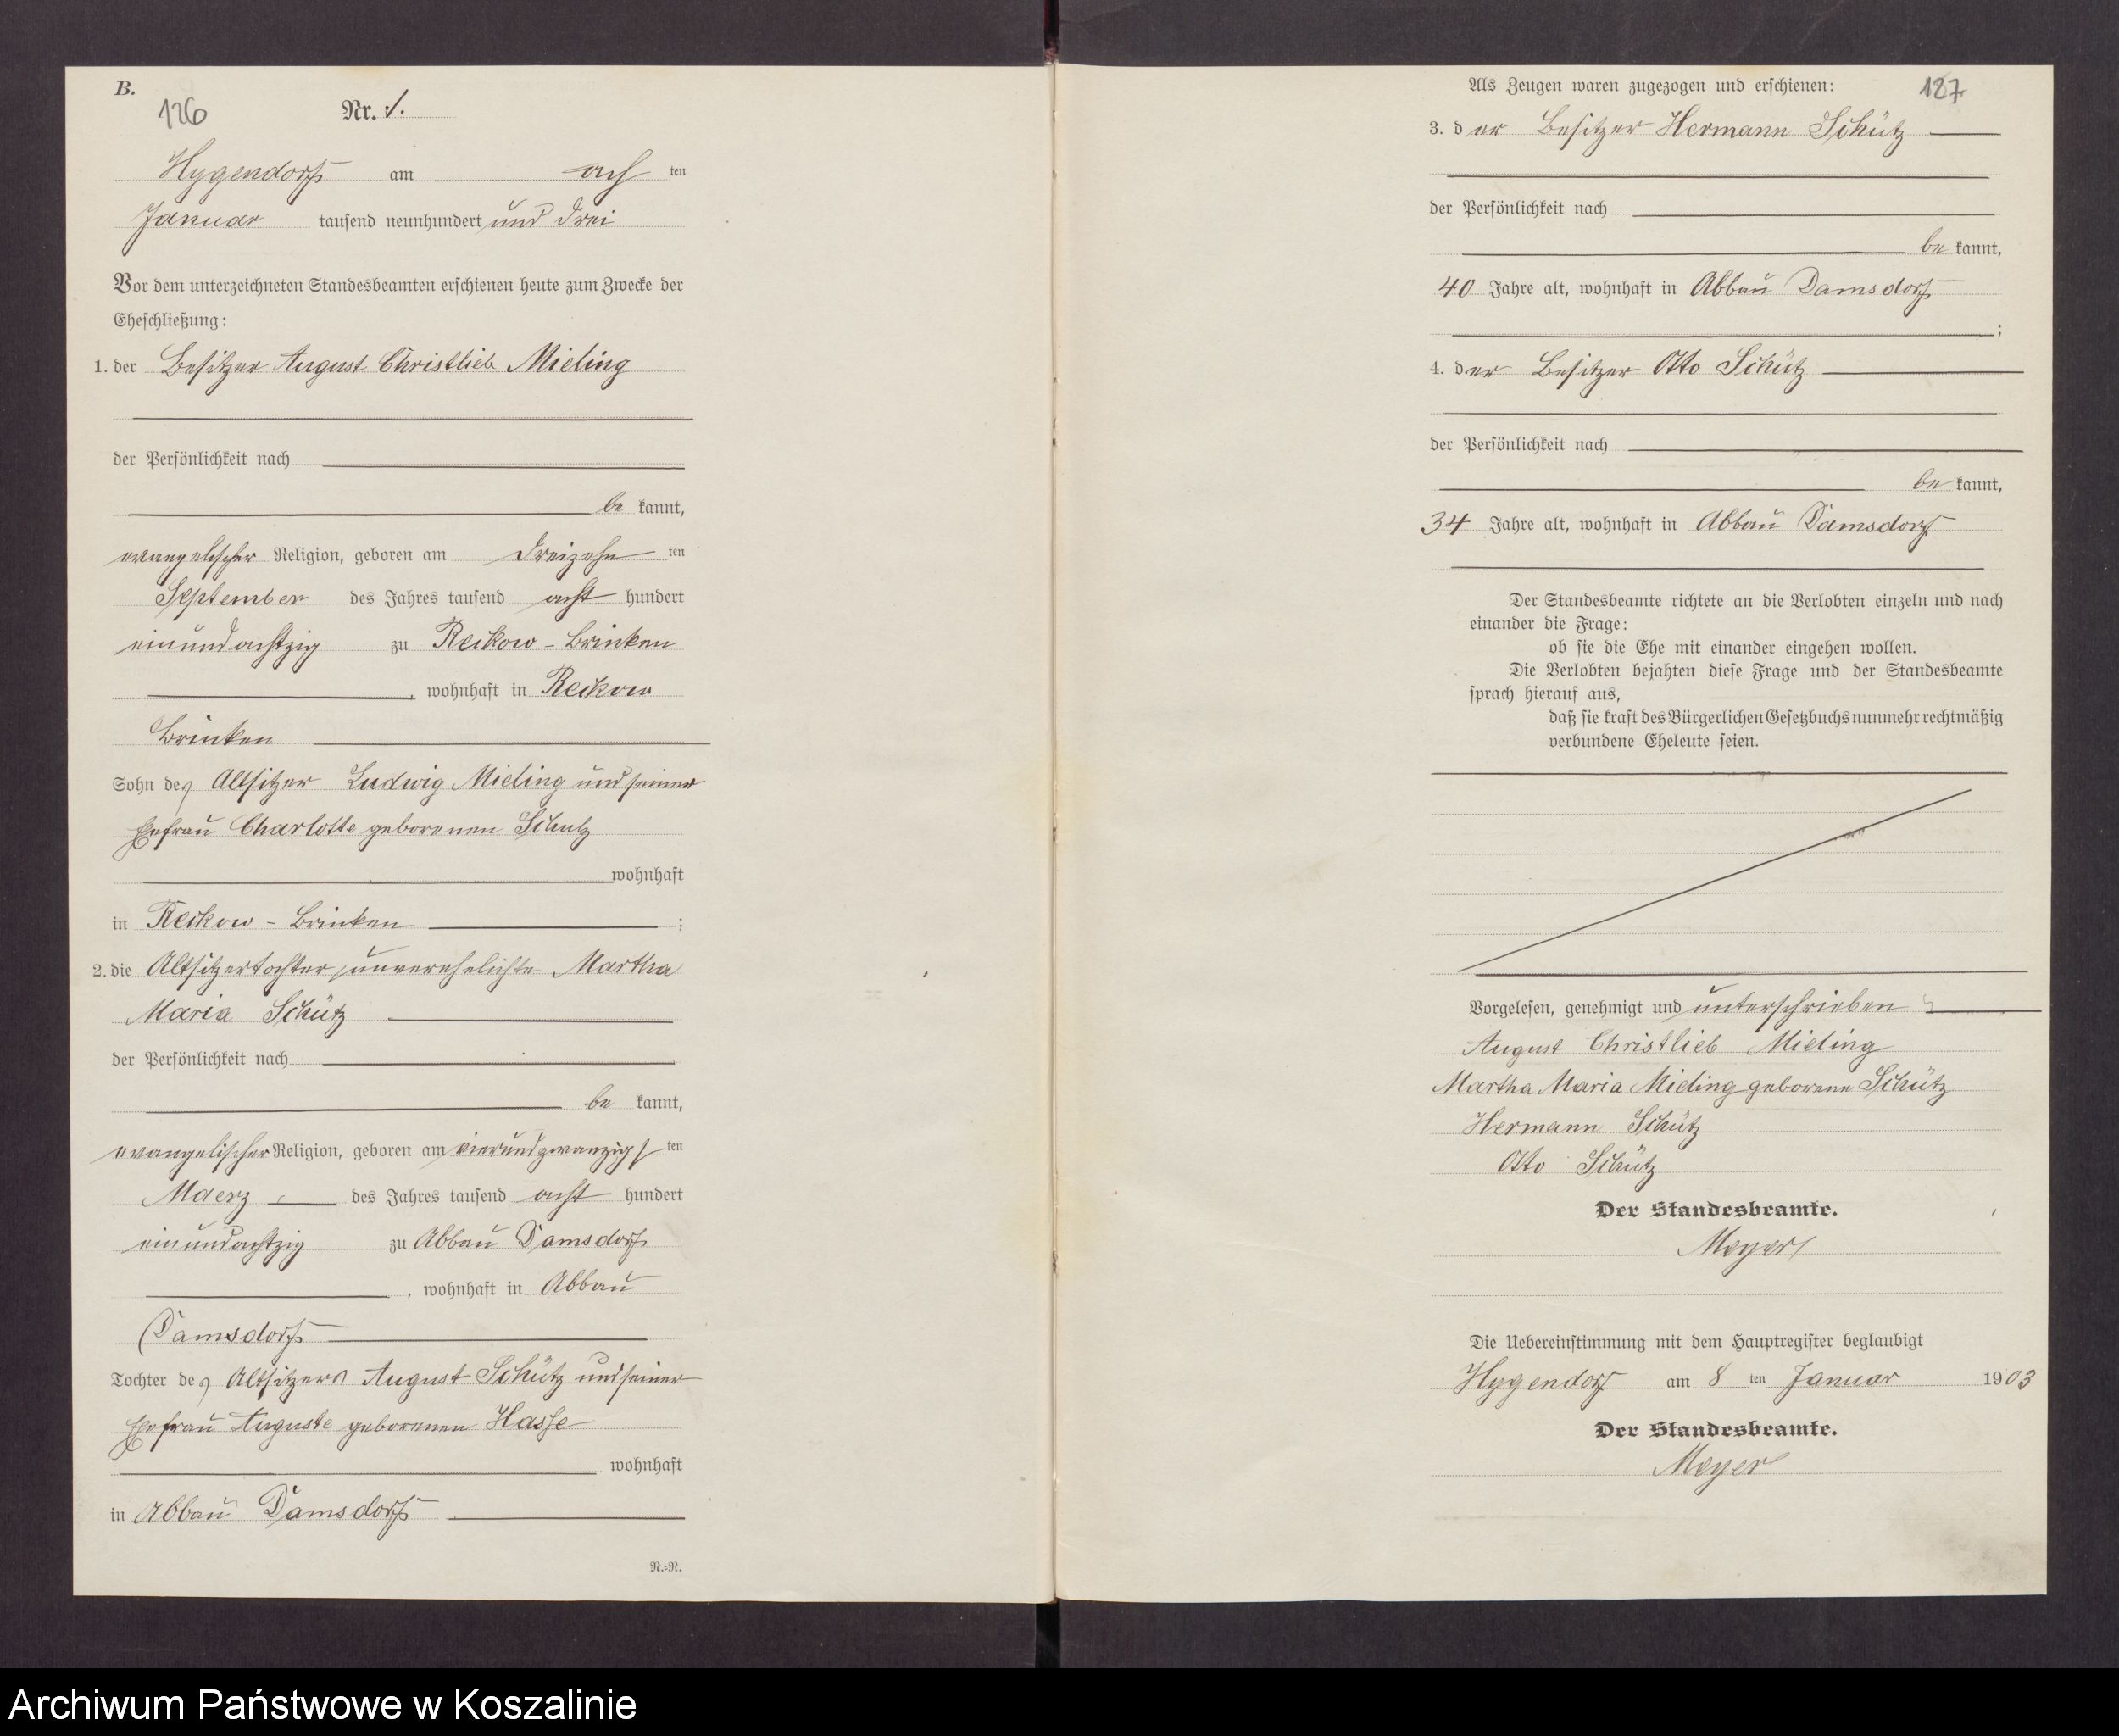 B.
126
Nr. 1.
Hygendorf am ach ten
Januar tausend neunhundert und drei
Vor dem unterzeichneten Standesbeamten erschienen heute zum Zwecke der
Eheschließung:
1. der Besitzer August Christlieb Mieling
der Persönlichkeit nach
be kannt,
evangelischer Religion, geboren am dreizehn ten
September des Jahres tausend acht hundert
einundachtzig zu Reckow - Brinken
, wohnhaft in Reckow
Brinken
Sohn des Altsitzer Ludwig Mieling und seiner
Ehefrau Charlotte geborenen Schulz
wohnhaft
in Reckow - Brinken ;
2. die Altsitzertochter, unverehelichte Martha
Maria Schütz
der Persönlichkeit nach
be kannt,
evangelischer Religion, geboren am vierundzwanzigs ten
Maerz des Jahres tausend acht hundert
einundachtzig zu Abbau Damsdorf
, wohnhaft in Abbau
Damsdorf
Tochter des Altsitzers August Schütz und seiner
Ehefrau Auguste geborenen Hasse
wohnhaft
in Abbau Damsdorf
N.=R.
Als Zeugen waren zugezogen und erschienen:
127
3. der Besitzer Hermann Schütz
der Persönlichkeit nach
be kannt,
40 Jahre alt, wohnhaft in Abbau Damsdorf
;
4. der Besitzer Otto Schütz
der Persönlichkeit nach
be kannt,
34 Jahre alt, wohnhaft in Abbau Damsdorf
Der Standesbeamte richtete an die Verlobten einzeln und nach
einander die Frage:
ob sie die Ehe mit einander eingehen wollen.
Die Verlobten bejahten diese Frage und der Standesbeamte
sprach hierauf aus,
daß sie kraft des Bürgerlichen Gesetzbuchs nunmehr rechtmäßig
verbundene Eheleute seien.
Vorgelesen, genehmigt und unterschrieben
August Christlieb Mieling
Martha Maria Mieling geborene Schütz
Hermann Schütz
Otto Schütz
Der Standesbeamte.
Meyer
Die Uebereinstimmung mit dem Hauptregister beglaubigt
Hygendorf am 8 ten Januar 1903
Der Standesbeamte.
Meyer
Archiwum Państwowe w Koszalinie